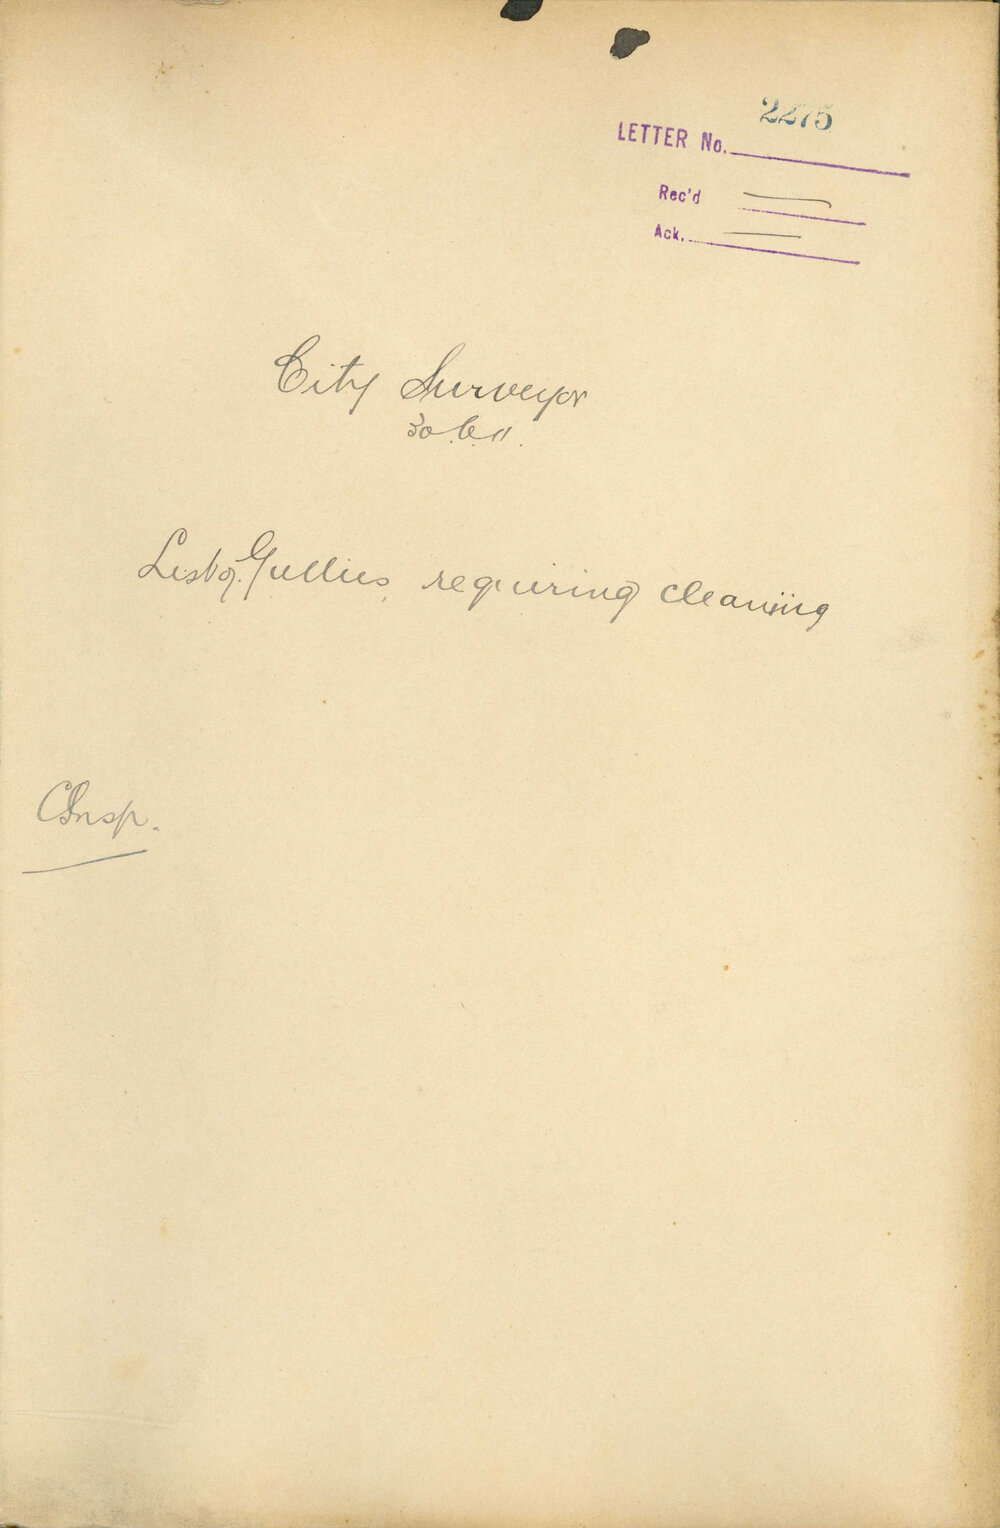 2275
LETTER No.
Rec'd
Ack.
City Surveyor
30.6.11.
List of Gullies requiring cleaning
C Insp.